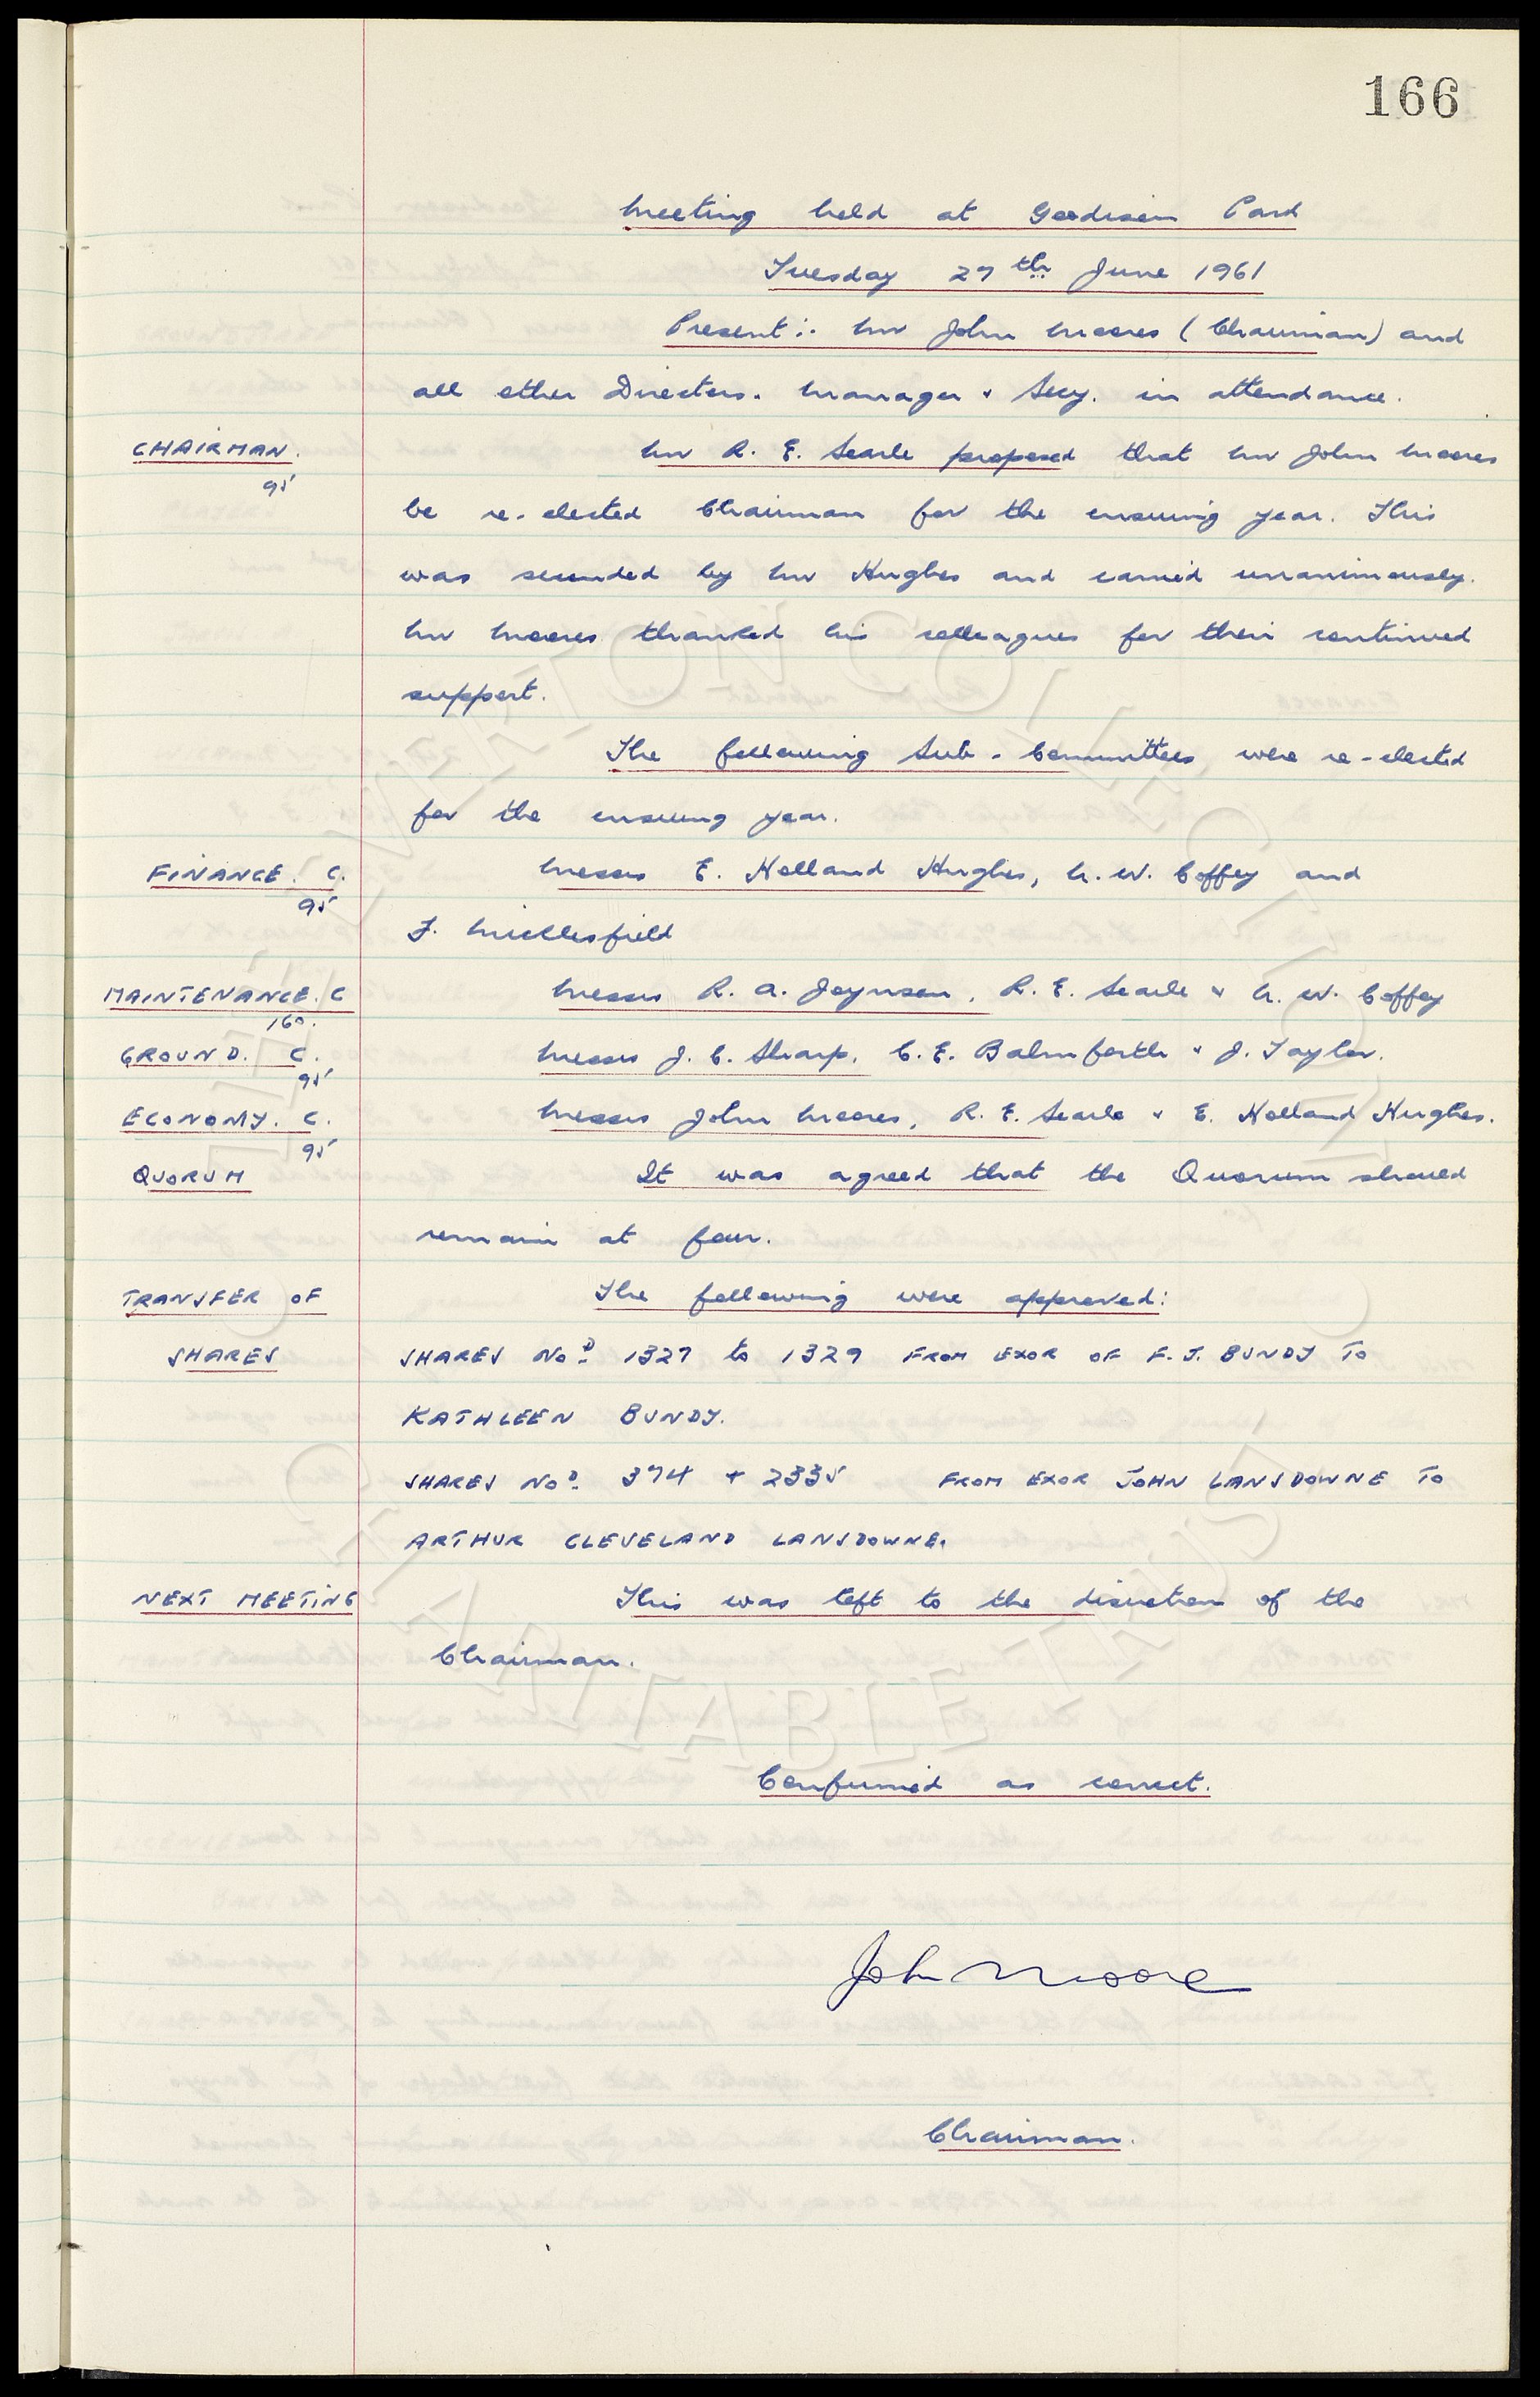 166
Meeting held at Goodison Park
Tuesday 27th June 1961
Present:- Mr John Moores (Chairman) and
all other Directors. Manager & Secy. in attendance.
CHAIRMAN. Mr R. E. Searle proposed that Mr John Moores
95
be re-elected Chairman for the ensuing year. This
was seconded by Mr Hughes and carried unanimously.
Mr Moores thanked his colleagues for their continued
support.
The following Sub-Committees were re-elected
for the ensuing year.
FINANCE. C. Messrs E. Holland Hughes, C. W. Coffey and
95
F. Micklesfield
MAINTENANCE. C Messrs R. A. Joynson, R. E. Searle & C. W. Coffey
160.
GROUND. C. Messrs J. C. Sharp, C. E. Balmforth & J. Taylor.
95
ECONOMY. C. Messrs John Moores, R. E. Searle & E. Holland Hughes.
95
QUORUM It was agreed that the Quorum should
remain at four.
TRANSFER OF The following were approved:
SHARES SHARES NoD 1327 to 1329 FROM EXOR OF F. J. BUNDY TO
KATHLEEN BUNDY.
SHARES NoD 374 + 2335 FROM EXOR JOHN LANSDOWNE TO
ARTHUR CLEVELAND LANSDOWNE.
NEXT MEETING This was left to the discretion of the
Chairman.
Confirmed as correct.
John Moores
Chairman.